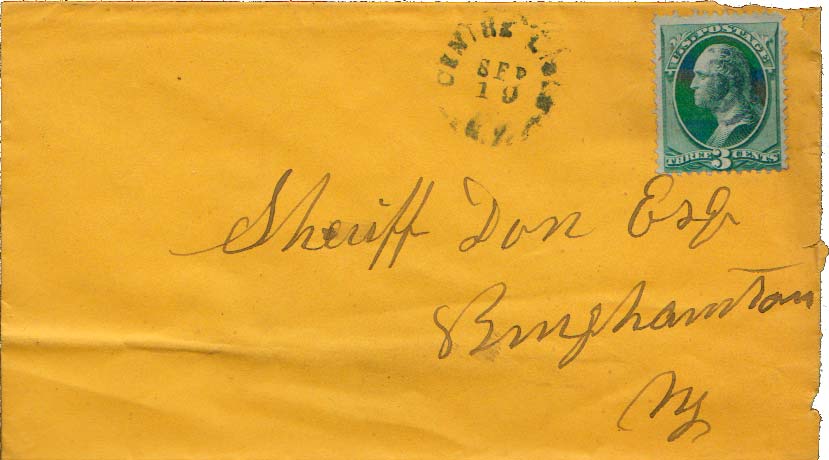 CENTRE
SEP
19
N.Y.
U.S. POSTAGE
THREE 3 CENTS
Sheriff Don Esq
Binghamton
NY